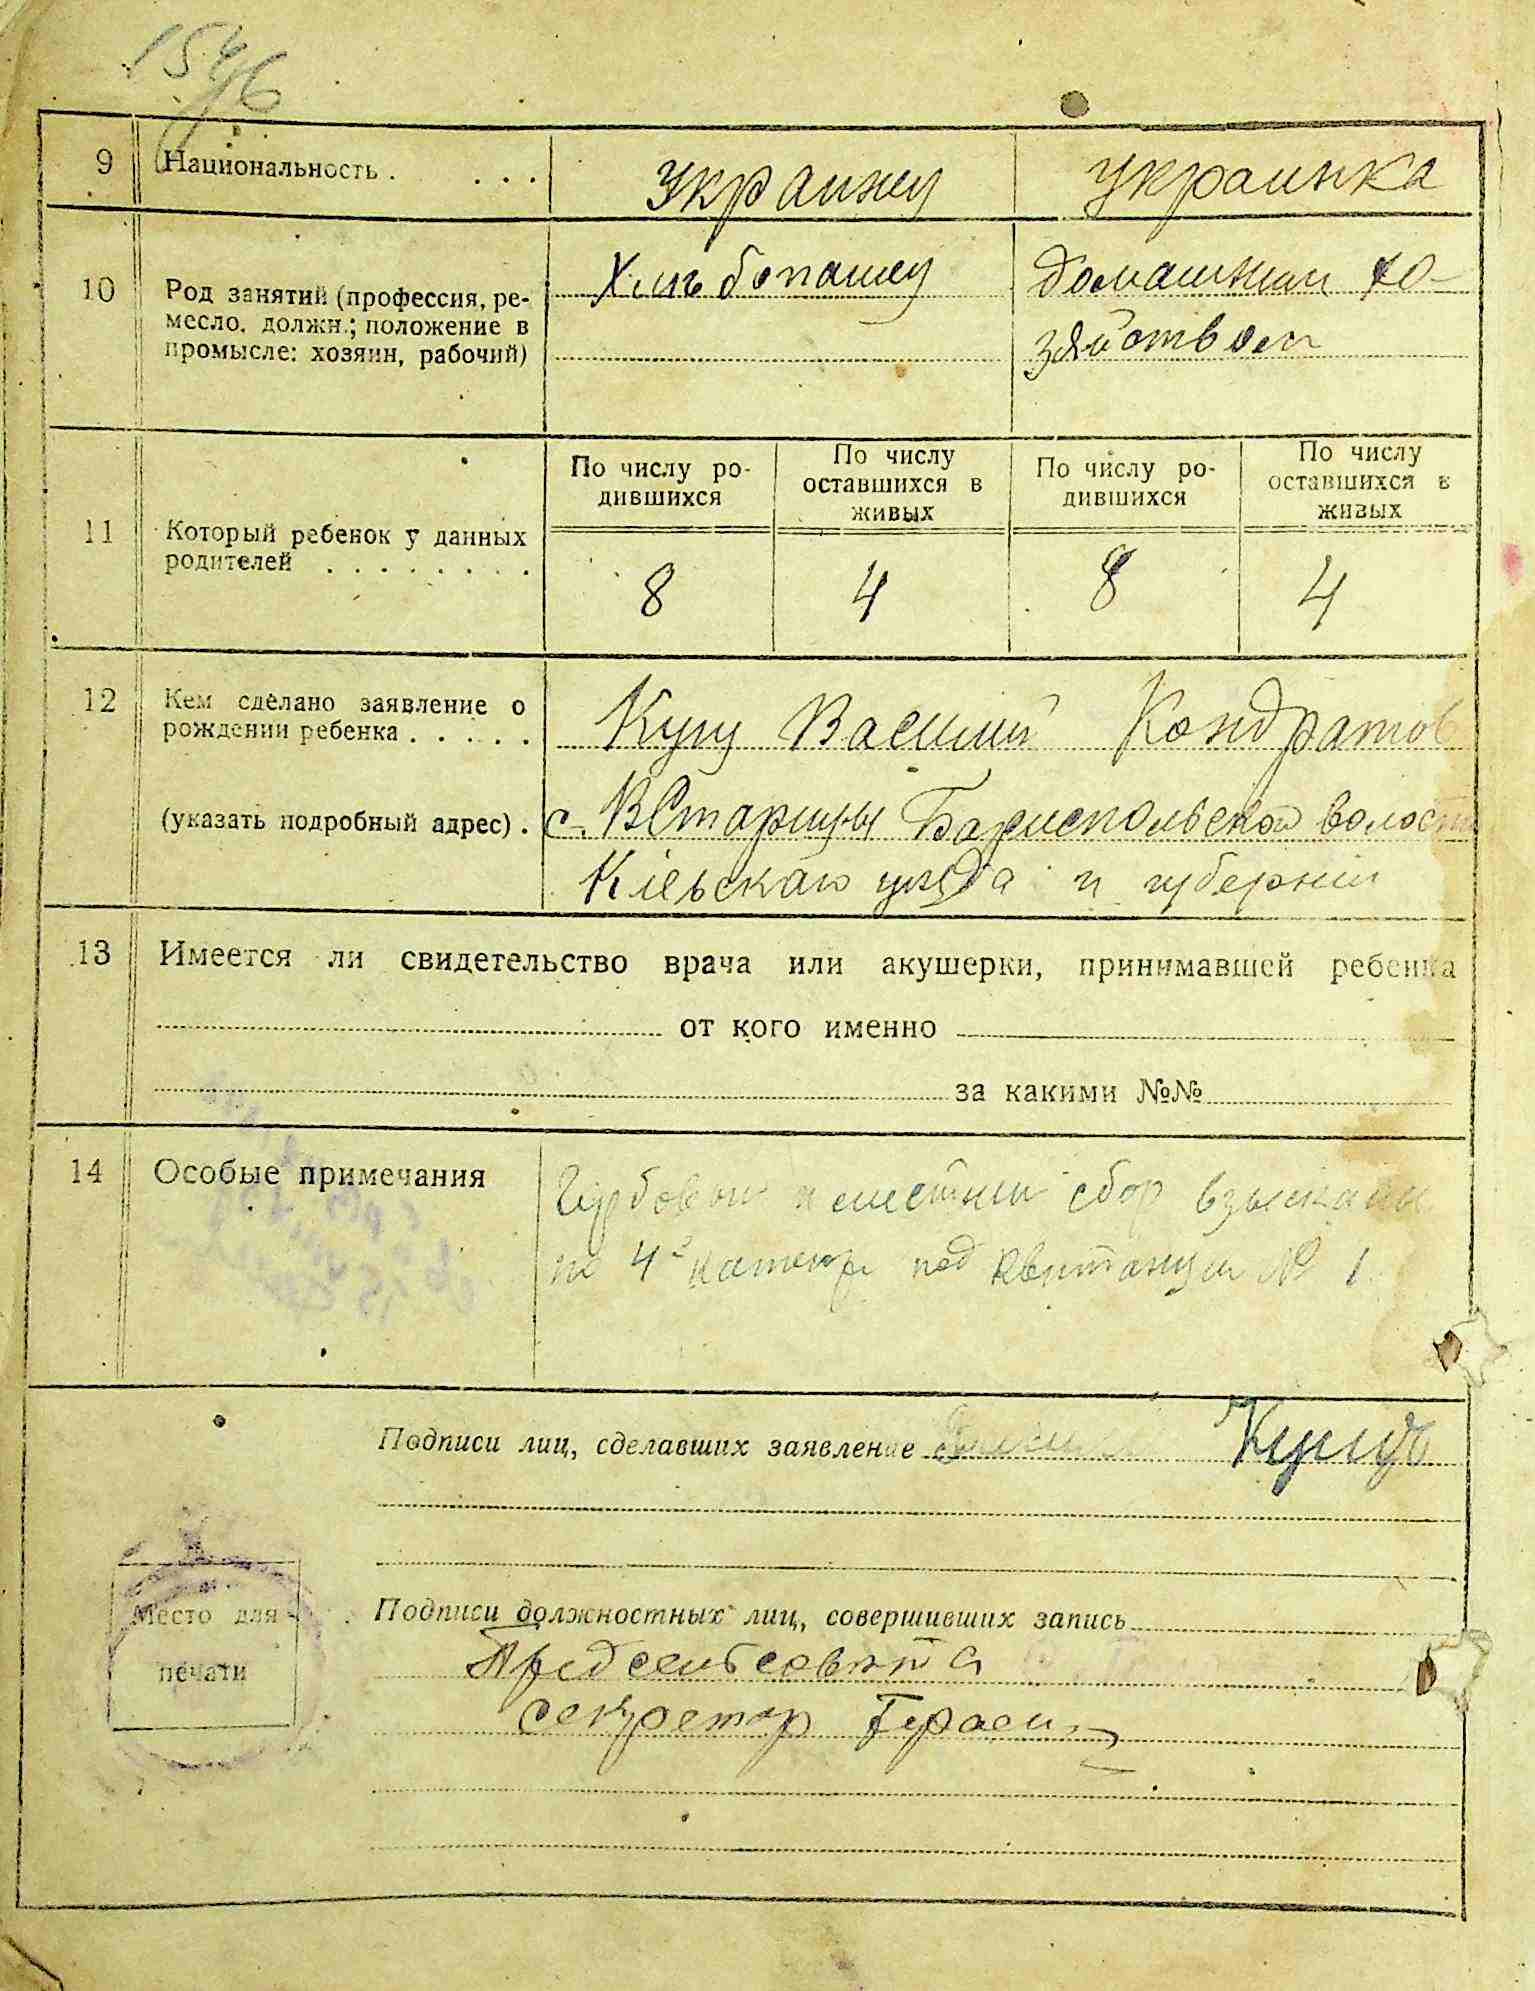 1546
9 Национальность . . . . украинец украинка
10 Род занятий (профессия, ре-
месло, должн.; положение в
промысле: хозяин, рабочий)
Хлѣбопашец
домашним хо-
зяйством
11 Который ребенок у данных
родителей . . . . . . . .
По числу ро-
дившихся
По числу
оставшихся в
живых
По числу ро-
дившихся
По числу
оставшихся в
живых
8 4 8 4
12 Кем сделано заявление о
рождении ребенка . . . . .
Василий Кондратов
(указать подробный адрес) . с. В Старицы Бориспольской волости
Кіевскаго уѣзда и губернии
13 Имеется ли свидетельство врача или акушерки, принимавшей ребенка
от кого именно
за какими №№
14 Особые примечания
Гербовый и местный сбор взыскан
по 4й категор под квитанции № 1
Подписи лиц, сделавших заявление
Место для
печати
Подписи должностных лиц, совершивших запись
Предсельсовета
секретар Герасим